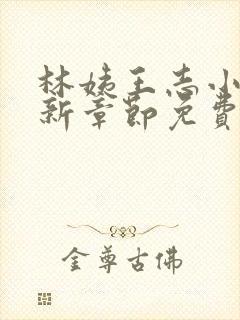 林姨王志小
新章節免費
金尊古佛